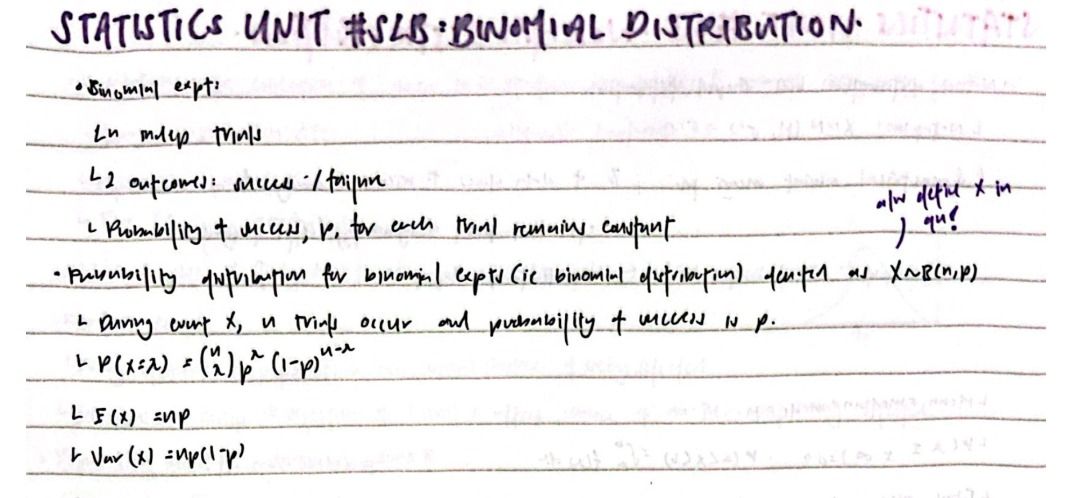 STATISTICS UNIT #SLB: BINOMIAL DISTRIBUTION.
• Binomial expt:
└ n indep trials
└ 2 outcomes: success / failure
└ Probability of success, p, for each trial remains constant
alw define X in qn!
• Probability distribution for binomial expts (ie binomial distribution) denoted as X~B(n,p)
└ During event X, n trials occur and probability of success is p.
└ P(X=x) = (n x) p^x (1-p)^n-x
└ E(X) = np
└ Var(X) = np(1-p)